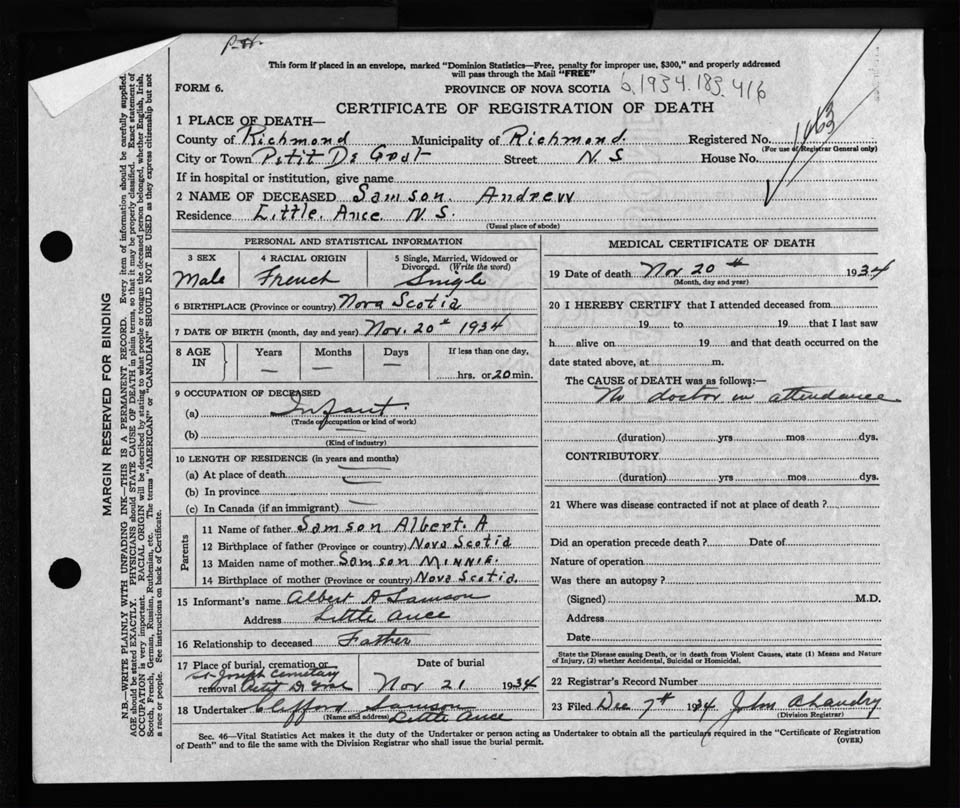 This form if placed in an envelope, marked "Dominion Statistics—Free, penalty for improper use, $300," and properly addressed
will pass through the Mail "FREE"
FORM 6.
PROVINCE OF NOVA SCOTIA
6.1934.183.416
CERTIFICATE OF REGISTRATION OF DEATH
1 PLACE OF DEATH—
County of Richmond Municipality of Richmond Registered No.
(For use of Registrar General only)
City or Town Petit De Grat Street N.S House No.
If in hospital or institution, give name
2 NAME OF DECEASED Samson. Andrew
Residence Little. Ance. N.S.
(Usual place of abode)
MARGIN RESERVED FOR BINDING
N.B.—WRITE PLAINLY WITH UNFADING INK—THIS IS A PERMANENT RECORD. Every item of information should be carefully supplied.
AGE should be stated EXACTLY. PHYSICIANS should STATE CAUSE OF DEATH in plain terms, so that it may be properly classified. Exact statement of
OCCUPATION is very important. RACIAL ORIGIN will be described by stating to what people or tongue the deceased person belonged, whether English, Irish,
Scotch, French, German, Russian, Ruthenian, etc. The terms "AMERICAN" or "CANADIAN" SHOULD NOT BE USED as they express citizenship but not
a race or people. See instructions on back of Certificate.
PERSONAL AND STATISTICAL INFORMATION
3 SEX
Male
4 RACIAL ORIGIN
French
5 Single, Married, Widowed or
Divorced. (Write the word)
Single
6 BIRTHPLACE (Province or country) Nova Scotia
7 DATE OF BIRTH (month, day and year) Nov. 20th 1934
8 AGE
IN
Years
—
Months
—
Days
—
If less than one day,
hrs. or 20 min.
9 OCCUPATION OF DECEASED
(a) Infant.
(Trade or occupation or kind of work)
(b)
(Kind of industry)
10 LENGTH OF RESIDENCE (in years and months)
(a) At place of death
(b) In province
(c) In Canada (if an immigrant)
Parents
11 Name of father Samson Albert. A
12 Birthplace of father (Province or country) Nova Scotia
13 Maiden name of mother Samson MINNIE.
14 Birthplace of mother (Province or country) Nova Scotia.
15 Informant's name Albert A Samson
Address Little Ance
16 Relationship to deceased Father
17 Place of burial, cremation or
St Joseph Cemetary
removal Petit De Grat
Date of burial
Nov 21 1934
18 Undertaker Clifford Samson
(Name and address) Little Ance
MEDICAL CERTIFICATE OF DEATH
19 Date of death Nov 20th 1934
(Month, day and year)
20 I HEREBY CERTIFY that I attended deceased from
19 to 19 that I last saw
h alive on 19 and that death occurred on the
date stated above, at m.
The CAUSE of DEATH was as follows:—
No doctor in attendance
(duration) yrs mos dys.
CONTRIBUTORY
(duration) yrs mos dys.
21 Where was disease contracted if not at place of death?
Did an operation precede death? Date of
Nature of operation
Was there an autopsy?
(Signed) M.D.
Address
Date
State the Disease causing Death, or in death from Violent Causes, state (1) Means and Nature
of Injury, (2) whether Accidental, Suicidal or Homicidal.
22 Registrar's Record Number
23 Filed Dec 7th 1934
(Division Registrar)
Sec. 46—Vital Statistics Act makes it the duty of the Undertaker or person acting as Undertaker to obtain all the particulars required in the "Certificate of Registration
of Death" and to file the same with the Division Registrar who shall issue the burial permit.
(OVER)